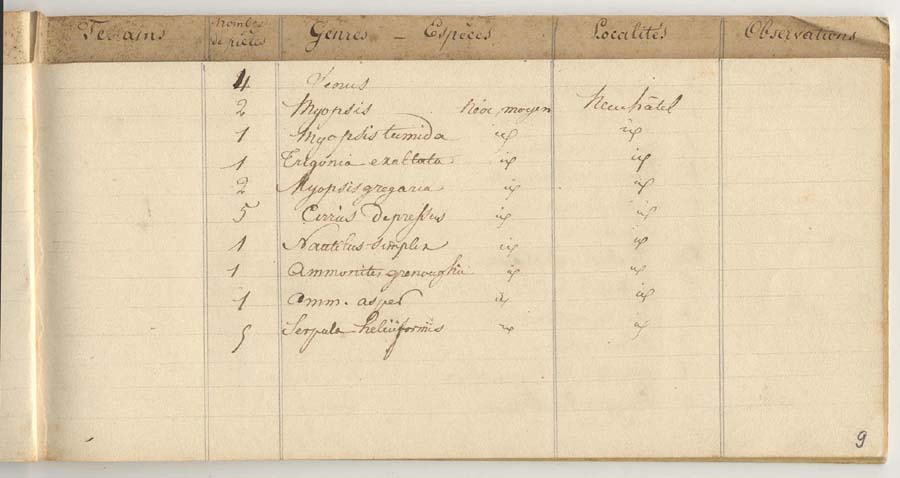 Terrains Nombre de pièces Genres - Espèces Localités Observations
4 Venus
2 Myopsis Néoc. moyen Neuchâtel
1 Myopsis tumida id id
1 Trigonia exaltata id id
2 Myopsis gregaria id id
5 Cirrus depressus id id
1 Nautilus simplex id id
1 Ammonites id id
1 Amm. asper id id
5 Serpula heliciformis id id
9